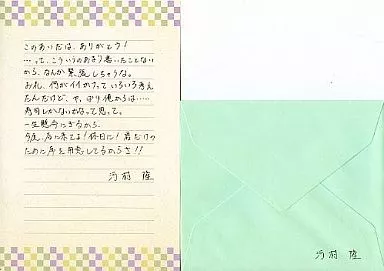 このあいだは、ありがとう!
…って、こういうのあまり書いたことない
から、なんか緊張しちゃうな。
お礼、何がイイかなっていろいろ考え
たんだけど、や、ぱり俺からは……
寿司しかないかなって思って。
一生懸命にぎるから、
今度、店に来てよ!休日に!君だけの
ために席を用意してるからさ!!
河村 隆
河村 隆